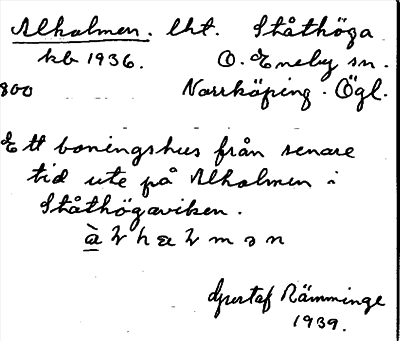 Alholmen. lht. Ståthöga
kb 1936. O. Eneby sn.
800 Norrköping. Ögl.
Ett boningshus från senare
tid ute på Alholmen i
Ståthögaviken.
Gustaf Rämminge
1939.